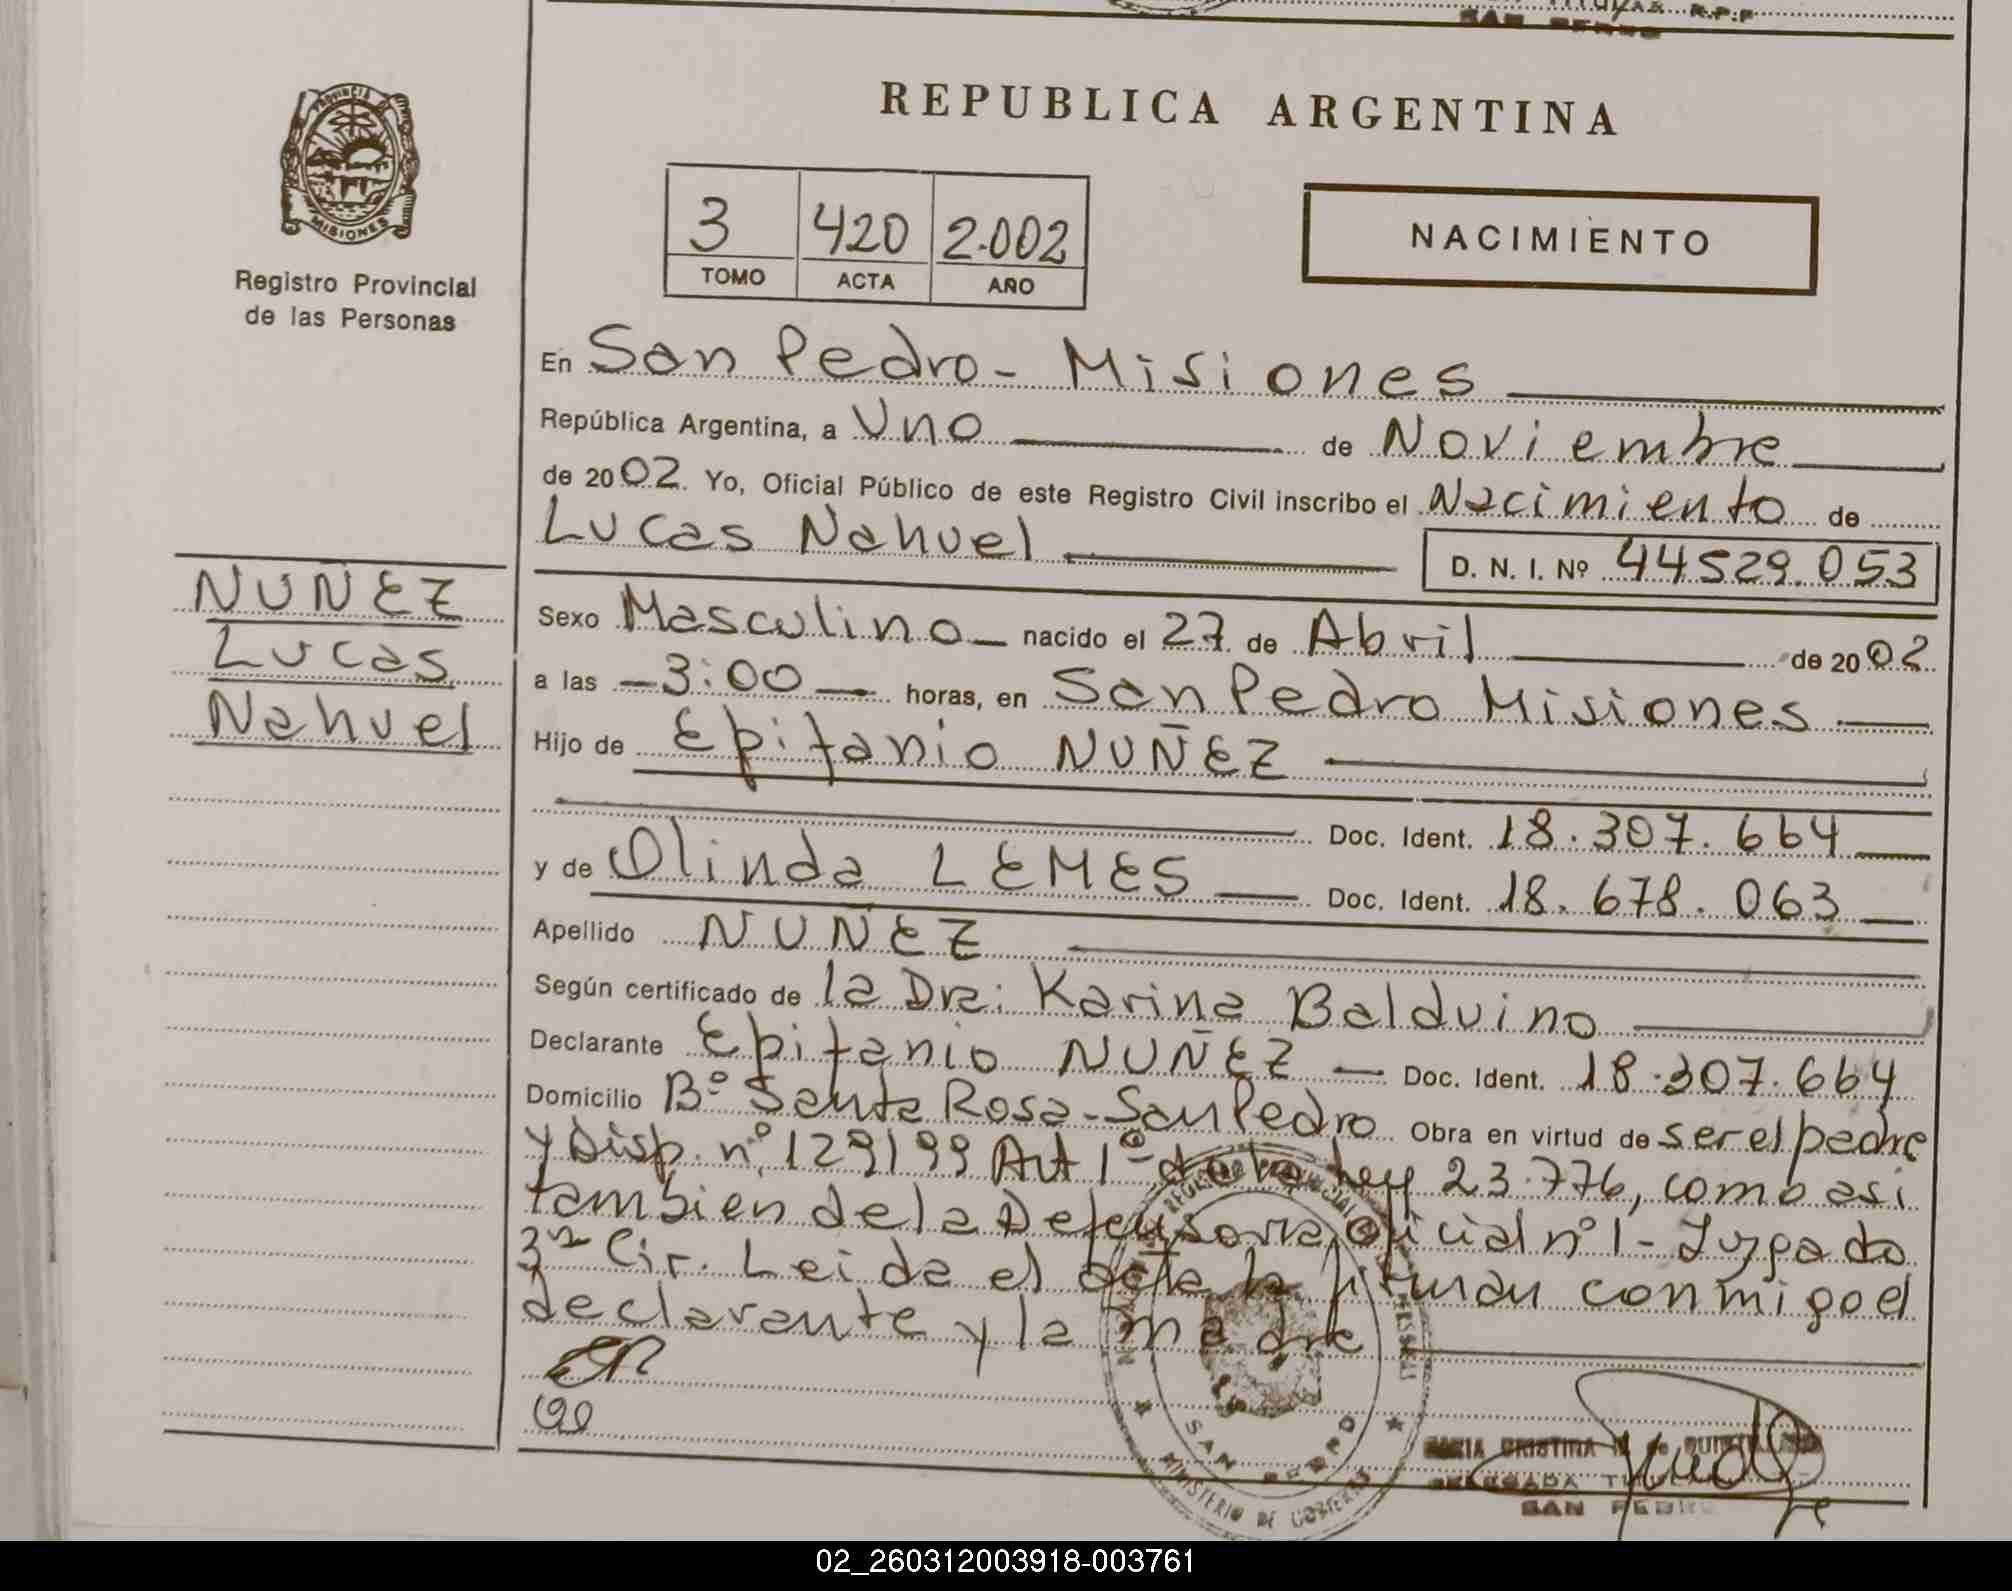 REPUBLICA ARGENTINA
PROVINCIA DE MISIONES
Registro Provincial
de las Personas
3 420 2.002
TOMO ACTA AÑO
NACIMIENTO
En San Pedro - Misiones
República Argentina, a Uno de Noviembre
de 2002. Yo, Oficial Público de este Registro Civil inscribo el Nacimiento de
Lucas Nahuel D. N. I. Nº 44529.053
NUÑEZ
Lucas
Nahuel
Sexo Masculino nacido el 27 de Abril de 2002
a las 3:00 horas, en San Pedro Misiones
Hijo de Epifanio NUÑEZ
Doc. Ident. 18.307.664
y de Olinda LEMES Doc. Ident. 18.678.063
Apellido NUÑEZ
Según certificado de la Dra: Karina Balduino
Declarante Epifanio NUÑEZ Doc. Ident. 18.307.664
Domicilio Bº Santa Rosa - San Pedro Obra en virtud de ser el padre
y Disp. nº 129/99 Art 1º de la ley 23.776, como asi
tambien de la Defensoria Oficial nº 1 - Juzgado
3ra Cir. Leida el acta la firman conmigo el
declarante y la madre
SAN PEDRO
MINISTERIO DE GOBIERNO
MARIA CRISTINA
DELEGADA
SAN PEDRO
02_260312003918-003761